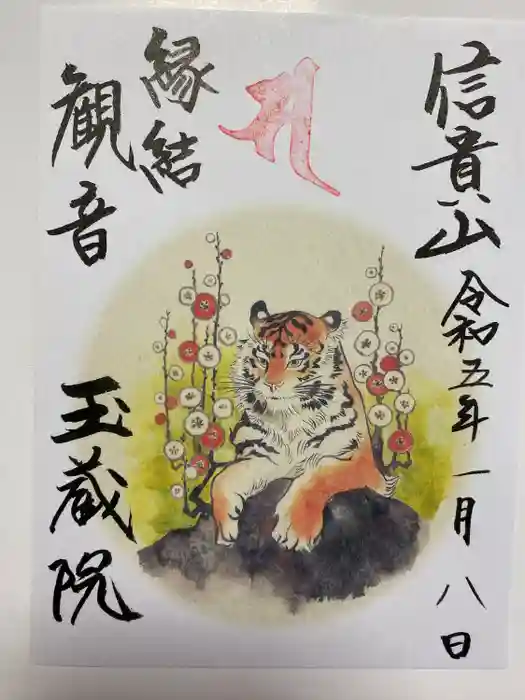 信貴山
令和五年一月八日
縁結
観音
玉蔵院